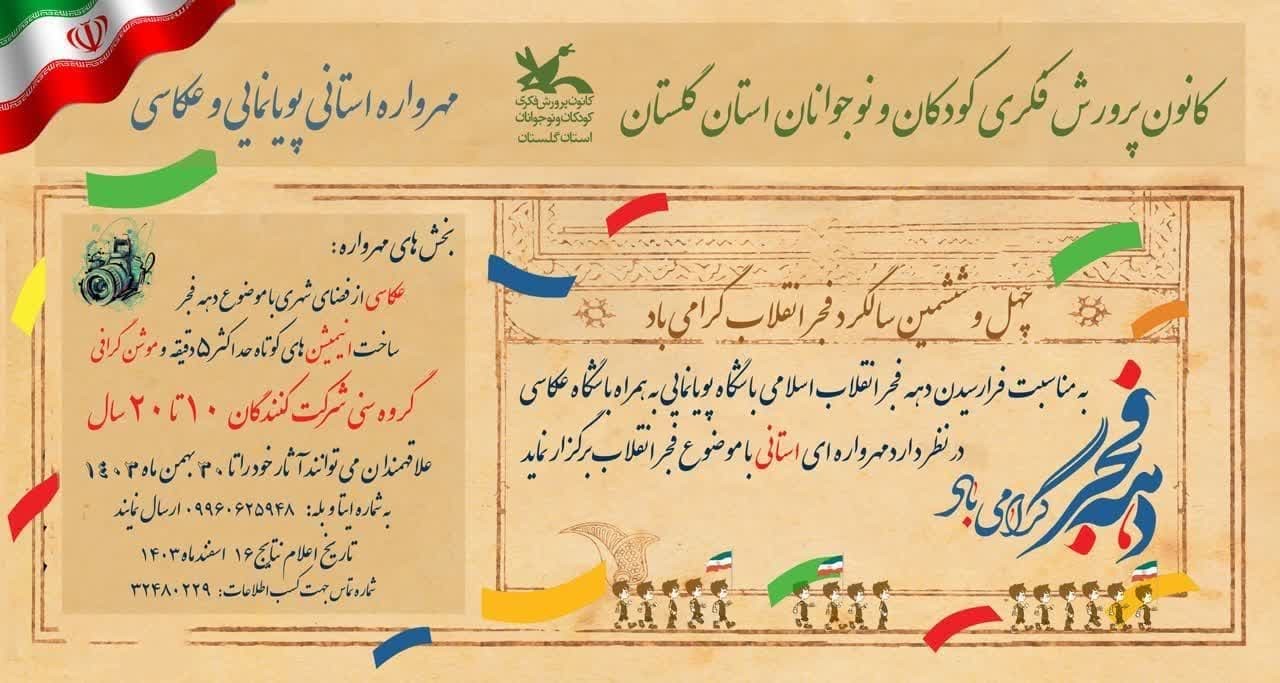 کانون پرورش فکری کودکان و نوجوانان استان گلستان
کانون پرورش فکری
کودکان و نوجوانان
استان گلستان
مهرواره استانی پویانمایی و عکاسی
چهل و ششمین سالگرد فجر انقلاب گرامی باد
به مناسبت فرارسیدن دهه فجر انقلاب اسلامی باشگاه پویانمایی به همراه باشگاه عکاسی
در نظر دارد مهرواره ای استانی با موضوع فجر انقلاب برگزار نماید
دهه فجر
گرامی باد
بخش های مهرواره :
عکاسی از فضای شهری با موضوع دهه فجر
ساخت انیمیشن های کوتاه حداکثر ۵ دقیقه و موشن گرافی
گروه سنی شرکت کنندگان ۱۰ تا ۲۰ سال
علاقمندان می توانند آثار خود را تا ۳۰ بهمن ماه ۱۴۰۳
به شماره ایتا و بله: ۰۹۹۶۰۶۲۵۹۴۸ ارسال نمایند
تاریخ اعلام نتایج ۱۶ اسفند ماه ۱۴۰۳
شماره تماس جهت کسب اطلاعات: ۳۲۴۸۰۲۲۹